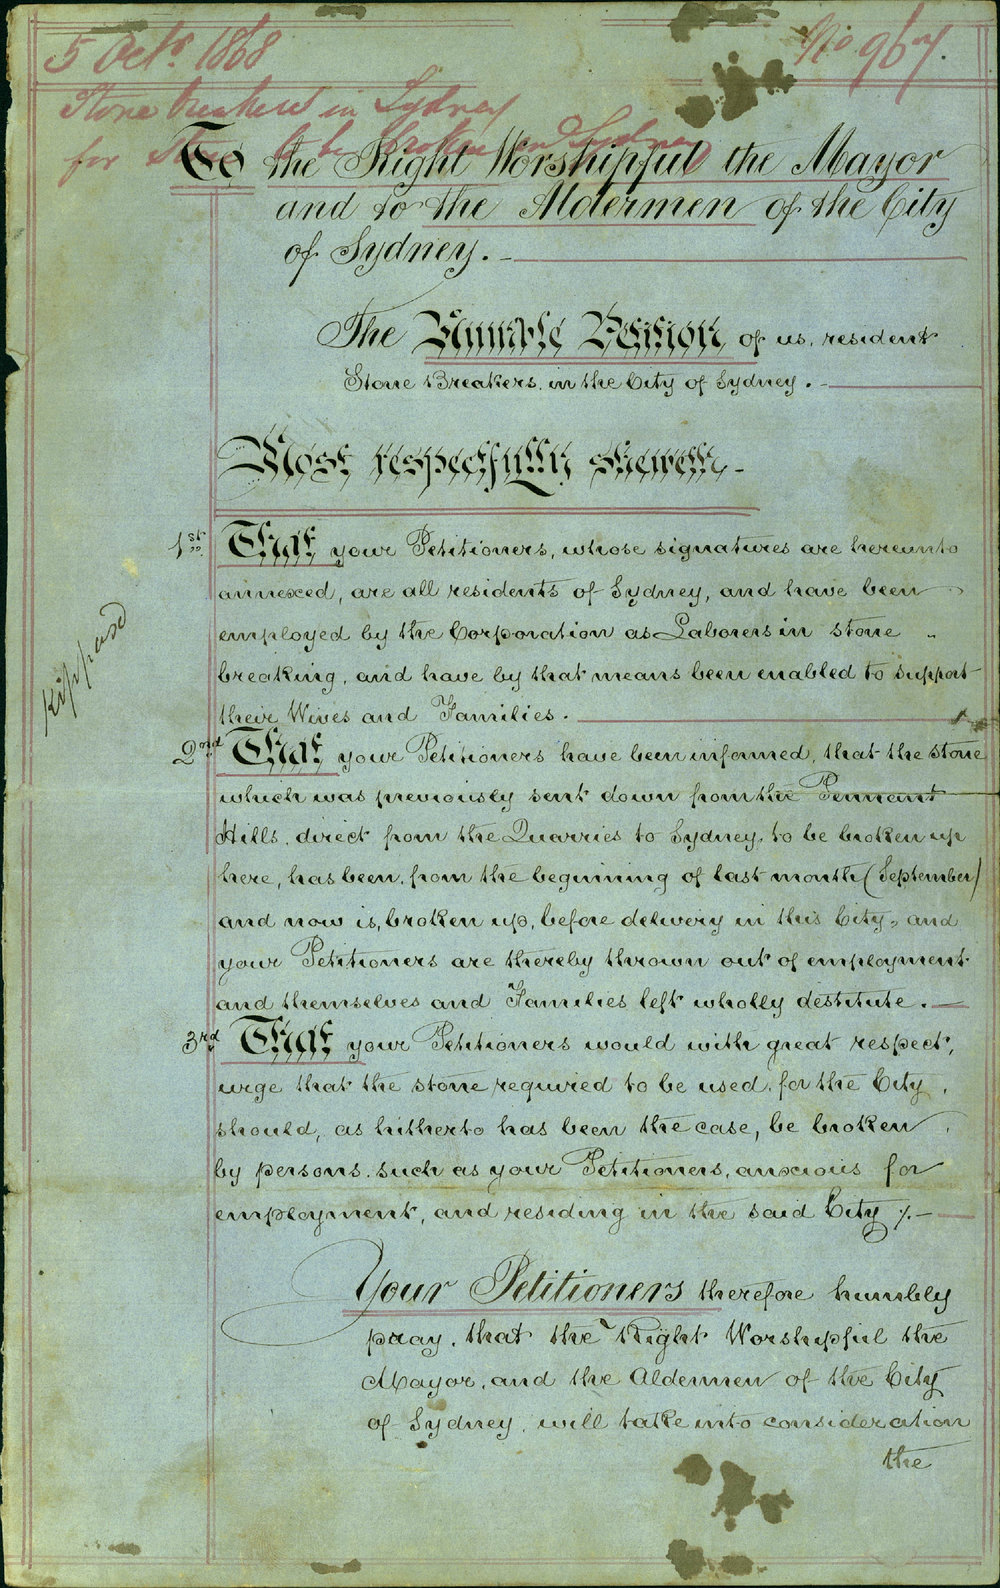 5 Octr 1868
No 967.
Stone breakers in Sydney
for Stone to be broken in Sydney
To the Right Worshipful the Mayor
and to the Aldermen of the City
of Sydney.
The Humble Petition of us, resident
Stone Breakers, in the City of Sydney.
Most respectfully sheweth
1st That your Petitioners, whose signatures are hereunto
annexed, are all residents of Sydney, and have been
employed by the Corporation as Laborers in stone
breaking, and have by that means been enabled to support
their Wives and Families.
2nd That your Petitioners have been informed, that the stone
which was previously sent down from the Pennant
Hills, direct from the Quarries to Sydney, to be broken up
here, has been, from the beginning of last month (September)
and now is, broken up, before delivery in this City, and
your Petitioners are thereby thrown out of employment
and themselves and Families left wholly destitute.
3rd That your Petitioners would with great respect,
urge that the stone required to be used, for the City,
should, as hitherto has been the case, be broken
by persons, such as your Petitioners, anxious for
employment, and residing in the said City
Your Petitioners therefore humbly
pray, that the Right Worshipful the
Mayor, and the Aldermen of the City
of Sydney, will take into consideration
the